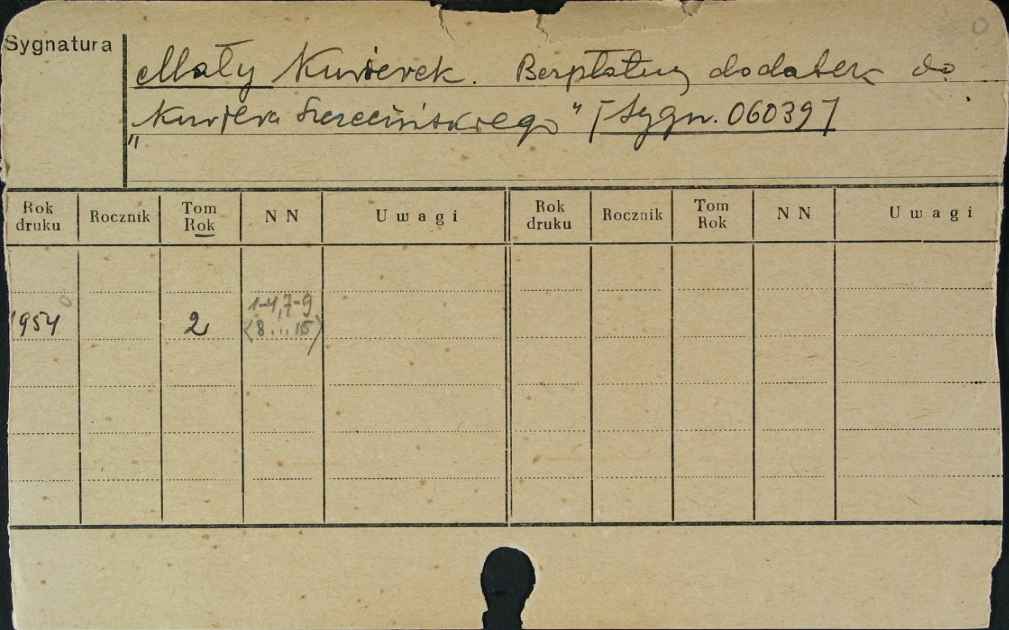 Sygnatura
Mały Kurierek. Bezpłatny dodatek do
„Kuriera Szczecińskiego" [Sygn. 06039]
Rok druku Rocznik Tom Rok N N Uwagi Rok druku Rocznik Tom Rok N N Uwagi
1-4, 7-9
1954 2 (8...15)